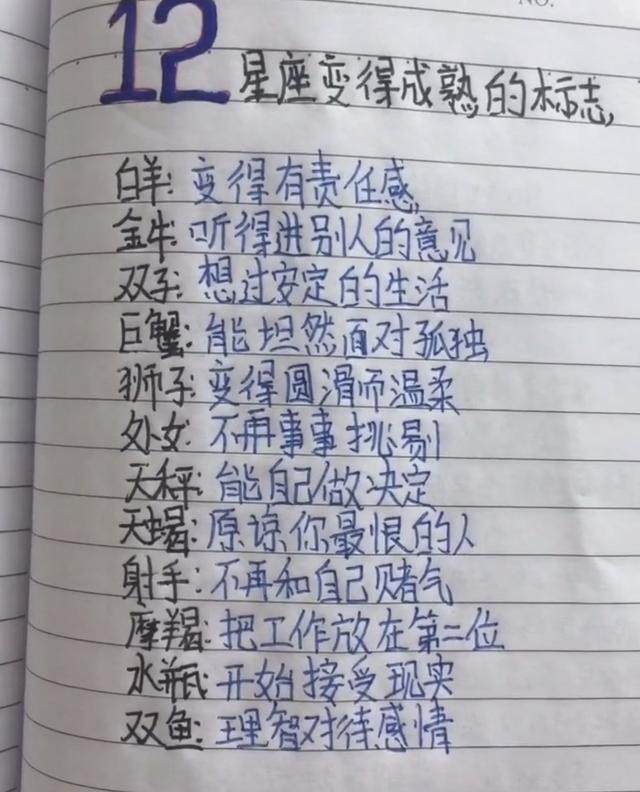 NO.
12星座变得成熟的标志,
白羊:变得有责任感,
金牛:听得进别人的意见
双子:想过安定的生活
巨蟹:能坦然面对孤独
狮子:变得圆滑而温柔
处女:不再事事挑剔
天秤:能自己做决定
天蝎:原谅你最恨的人
射手:不再和自己赌气
摩羯:把工作放在第二位
水瓶:开始接受现实
双鱼:理智对待感情